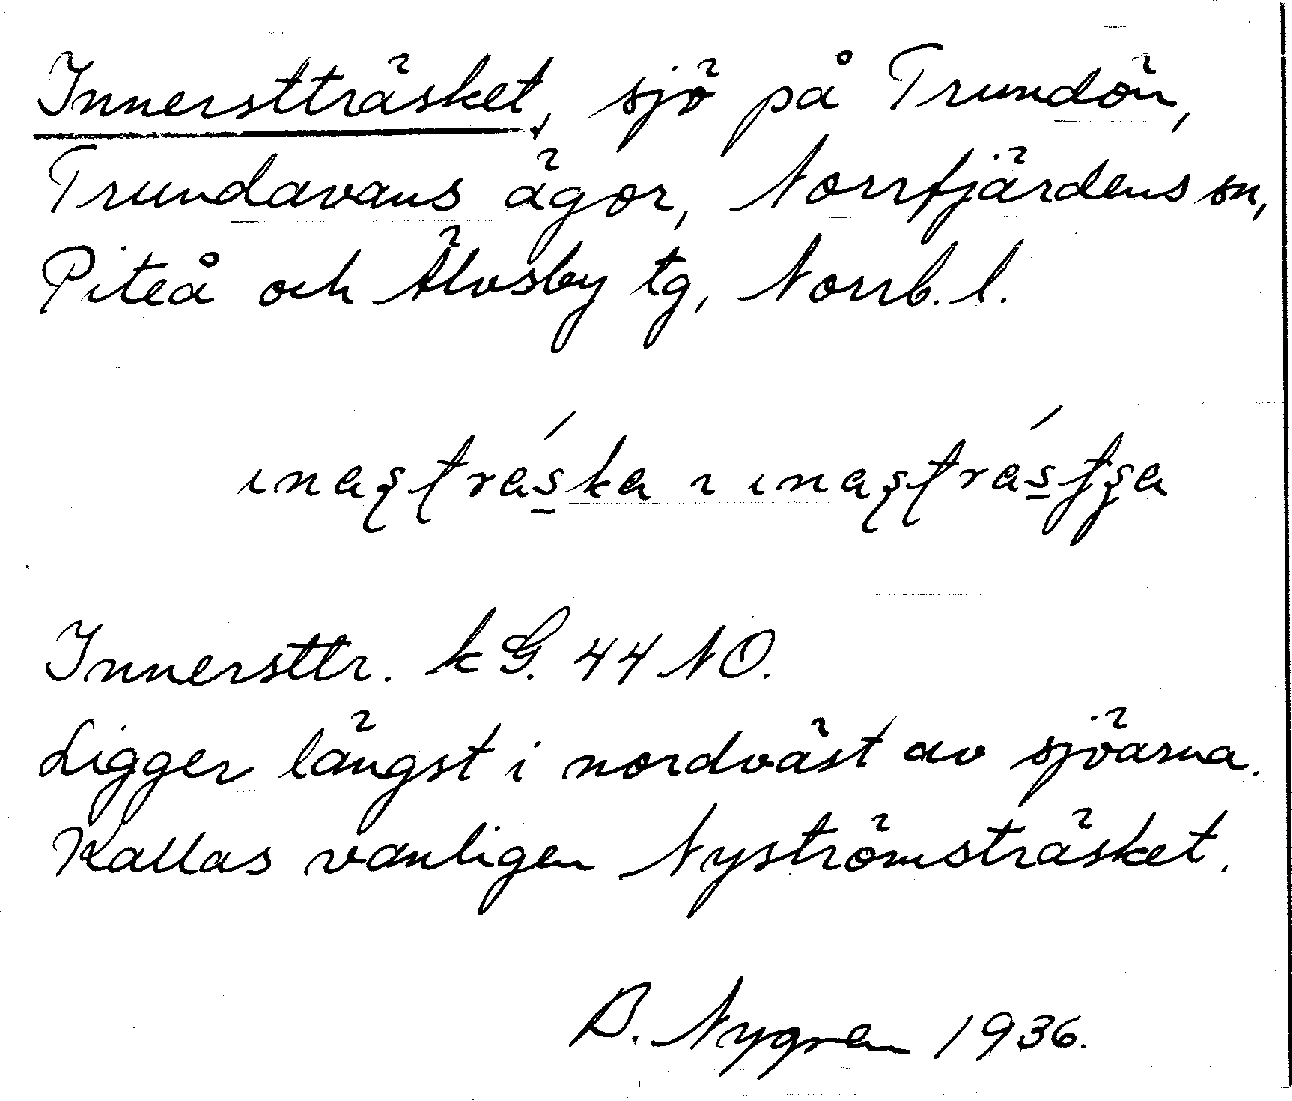 Innerstträsket, sjö på Trundön,
Trundavans ägor, Norrfjärdens sn,
Piteå och Älvsby tg, Norrb. l.
Innersttr. kG. 44 NO.
Ligger längst i nordväst av sjöarna.
Kallas vanligen Nyströmsträsket.
B. Nygren 1936.